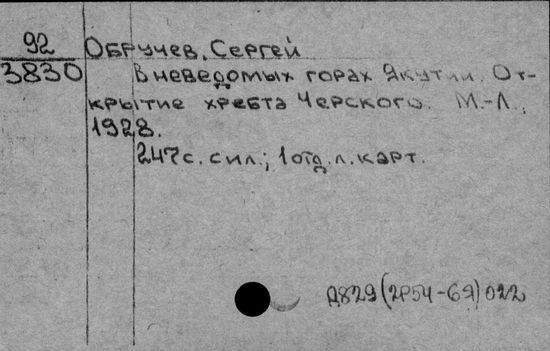 92
3830
Обручев, Сергей
В неведомых горах Якутии. От-
крытие хребта Черского. М.-Л.,
1928.
247с. сил.; 1отд.л.карт.
Д829(2Р54-6Я)022